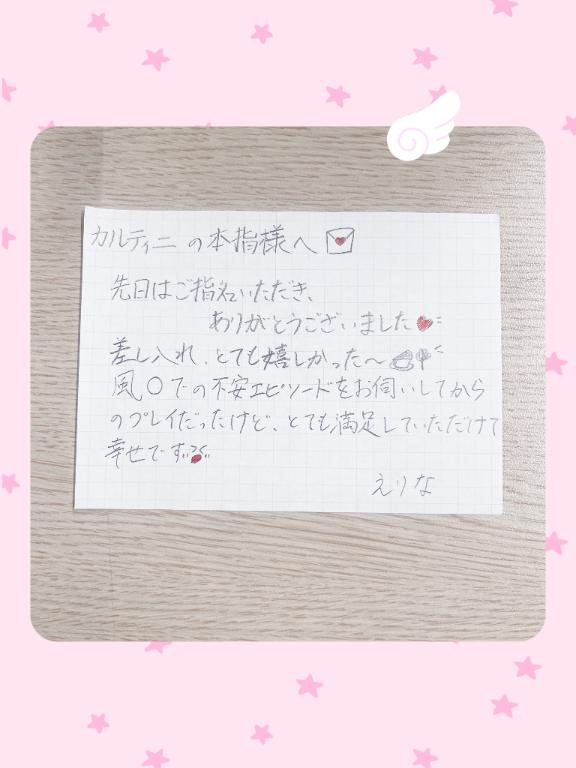 カルティニの本指様へ
先日はご指名いただき、
ありがとうございました
差し入れ、とても嬉しかった〜
風〇での不安エピソードをお伺いしてから
のプレイだったけど、とても満足していただけて
幸せです
えりな